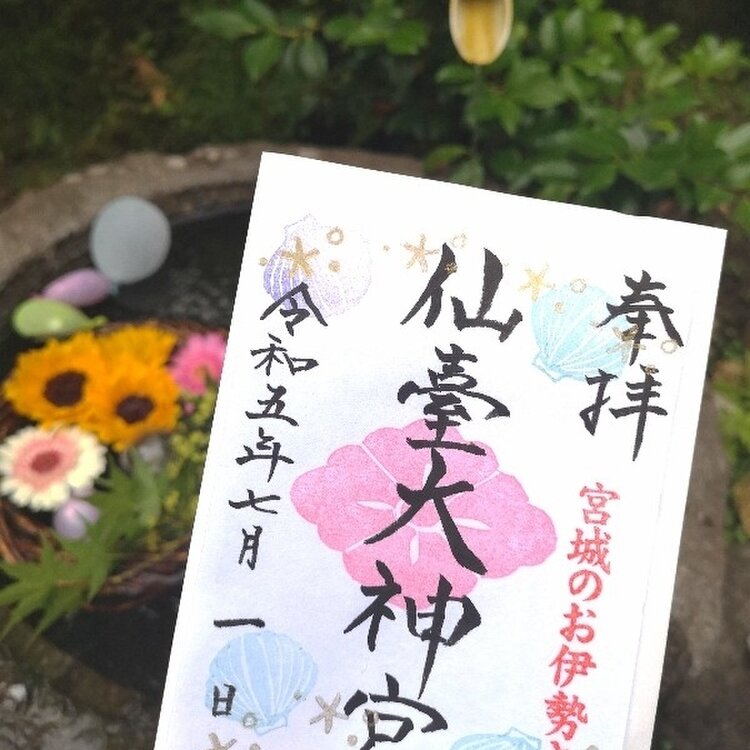 奉拝
宮城のお伊勢
仙臺大神宮
令和五年七月一日